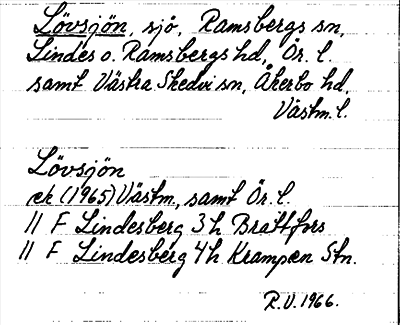 Lövsjön, sjö, Ramsbergs sn,
Lindes o. Ramsbergs hd, Ör. l.
samt Västra Skedvi sn, Åkerbo hd,
Västm. l.
Lövsjön
ek (1965) Västm, samt Ör. l.
11 F Lindesberg 3 h Brattfors
11 F Lindesberg 4 h Krampen Stn.
R.V. 1966.